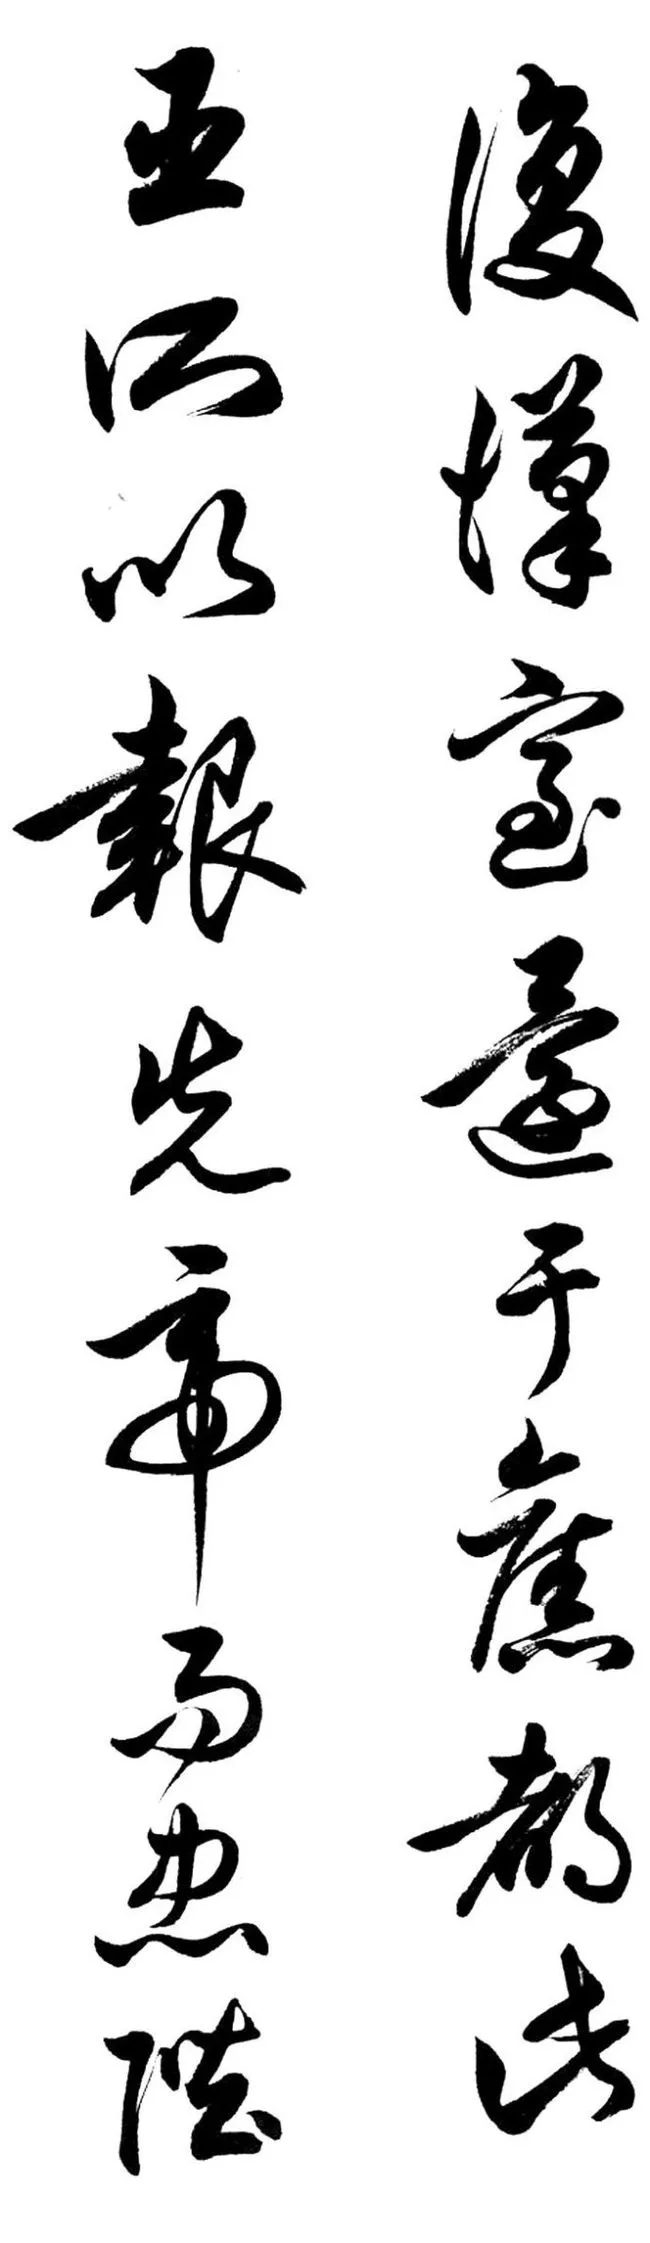 復漢室還于舊都此
臣所以報先帝而忠陛